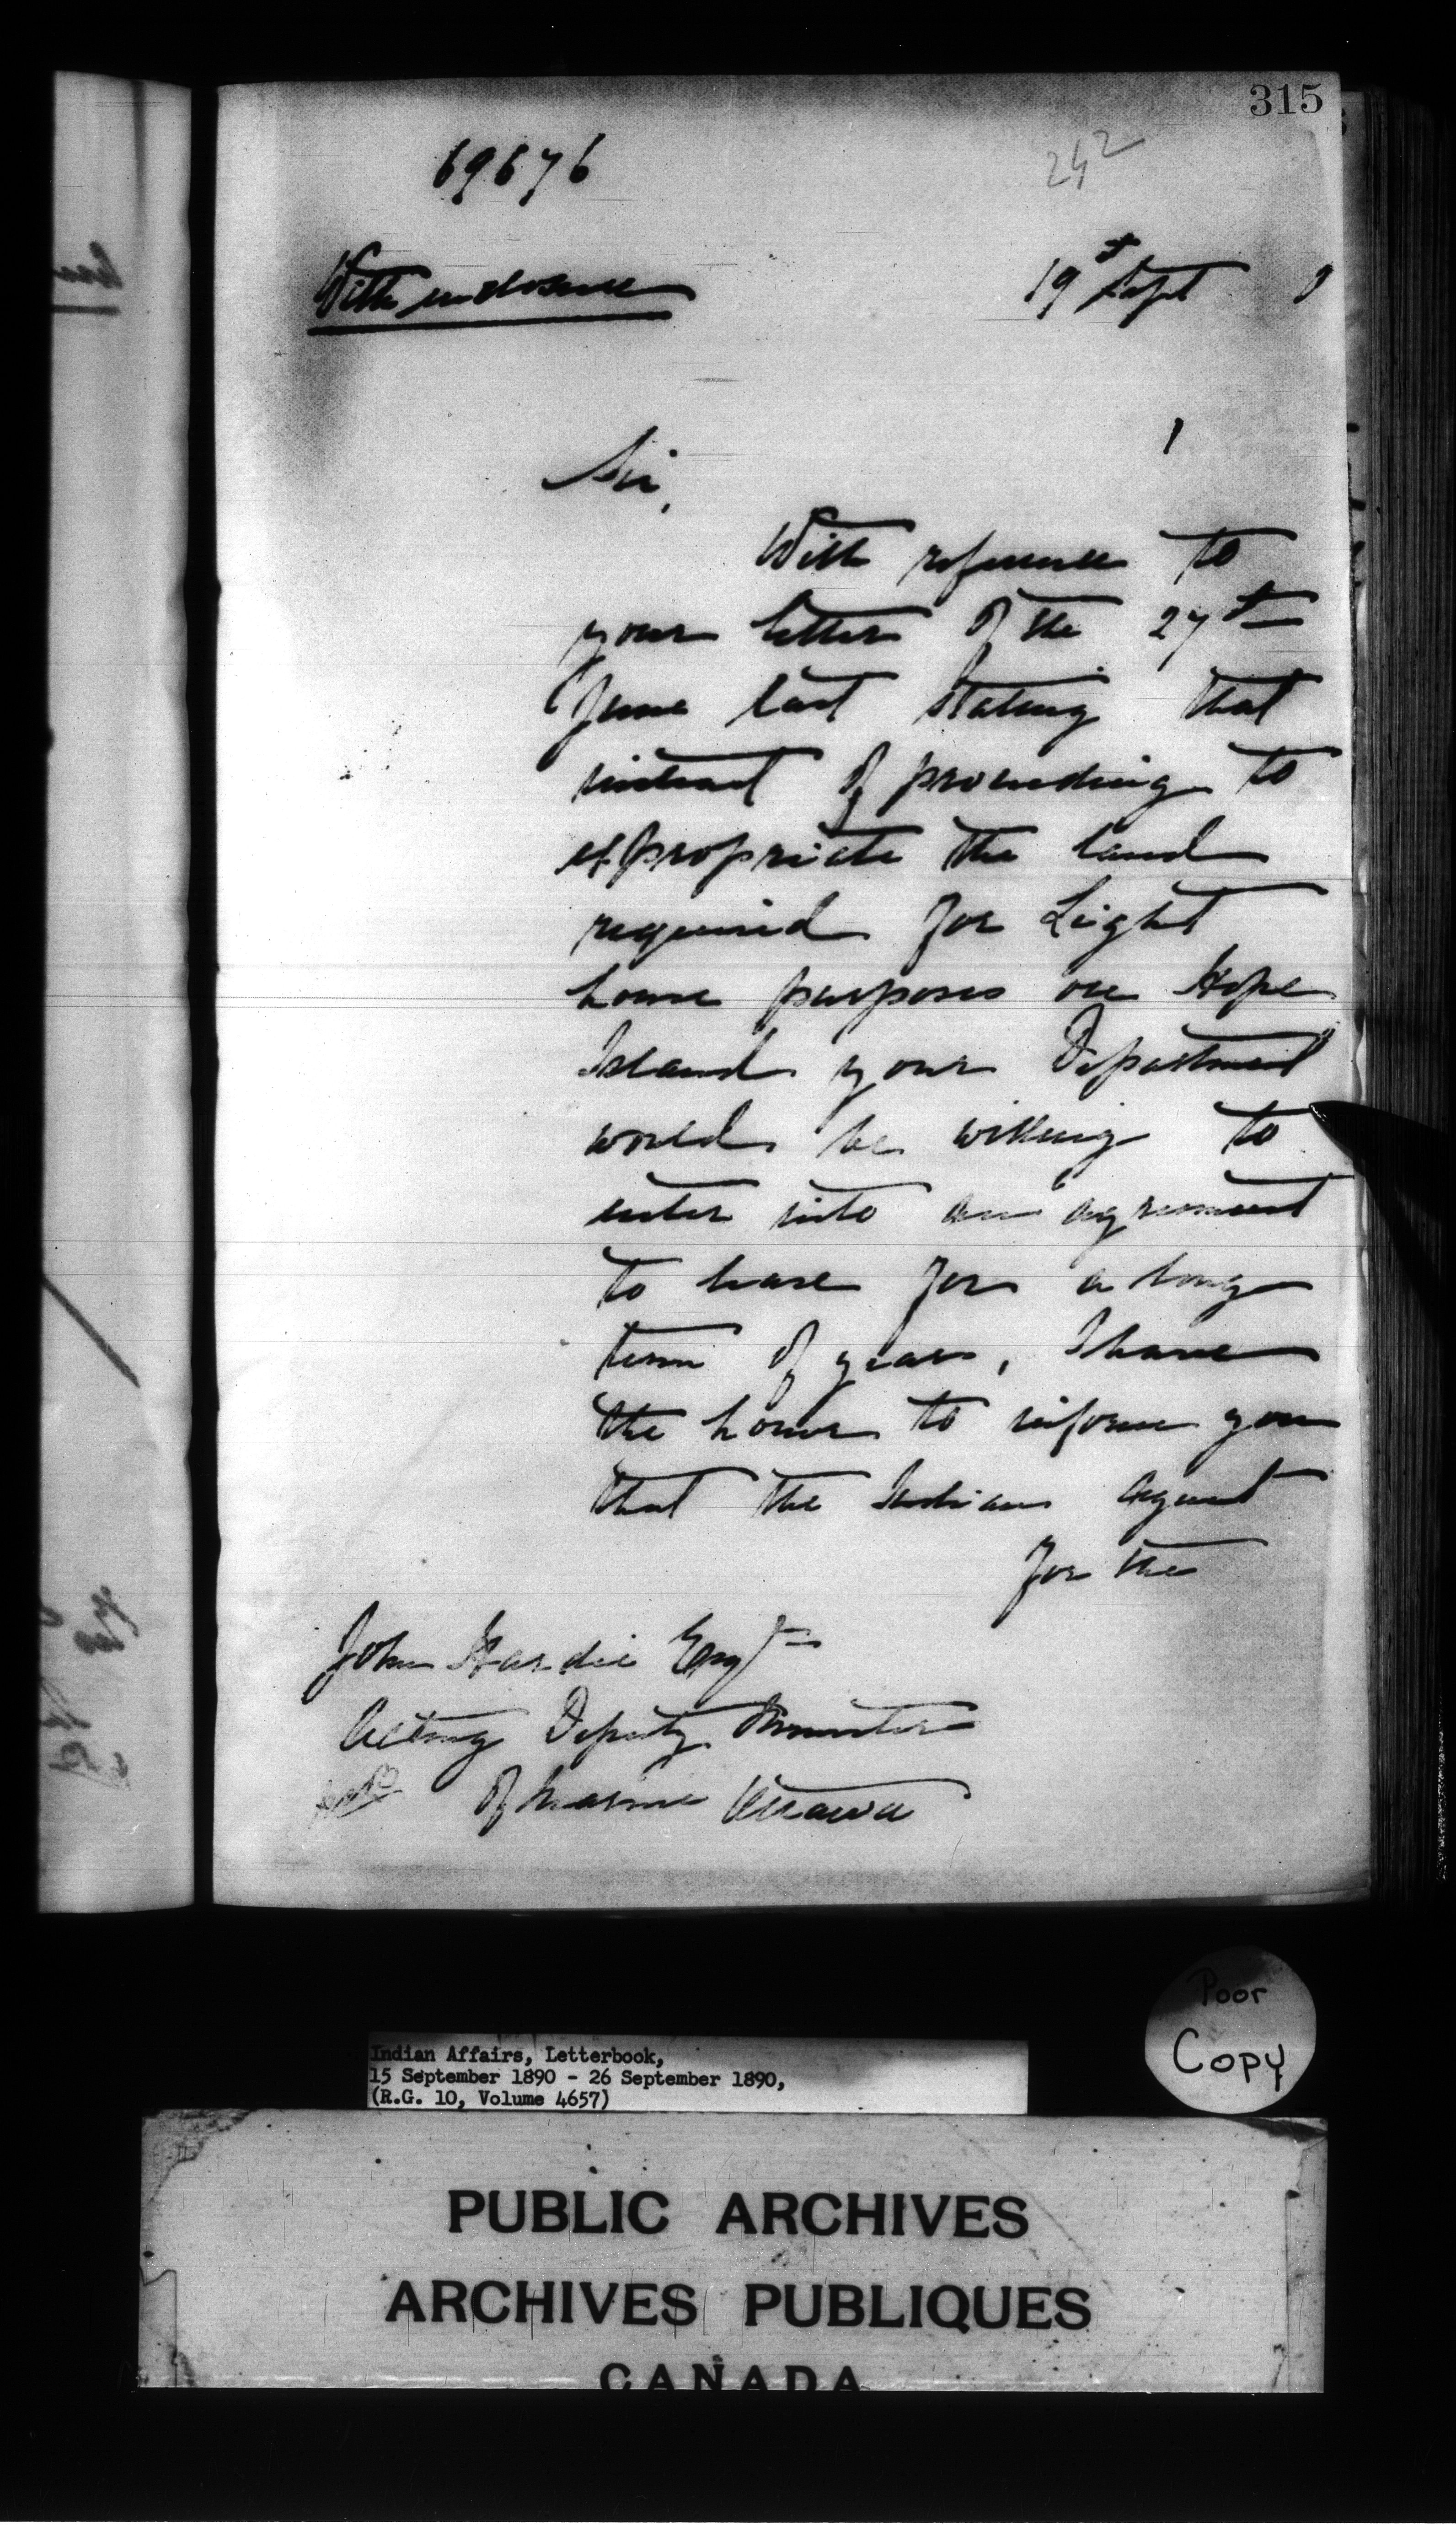 315
69676
242
With enclosure
19th Sept 0
Sir,
With reference to
your letter of the 27th
June last stating that
instead of proceeding to
expropriate the land
required for Light
house purposes on Hope
Island your Department
would be willing to
enter into an agreement
to lease for a long
term of years, I have
the honor to inform you
that the Indian Agent
for the
John Hardie Esqre
Acting Deputy Minister
of Marine Ottawa
Poor
Copy
Indian Affairs, Letterbook,
15 September 1890 - 26 September 1890,
(R.G. 10, Volume 4657)
PUBLIC ARCHIVES
ARCHIVES PUBLIQUES
CANADA